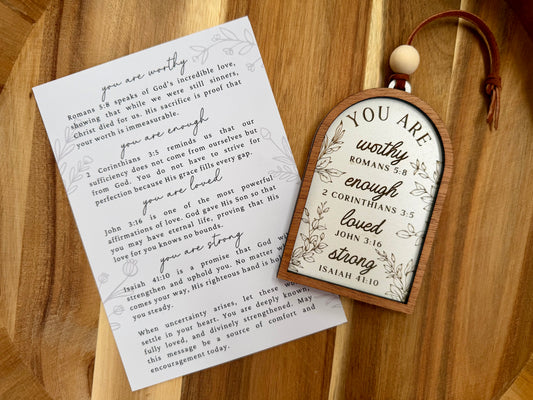 you are worthy
Romans 5:8 speaks of God's incredible love,
showing that while we were still sinners,
Christ died for us. His sacrifice is proof that
your worth is immeasurable.
you are enough
2 Corinthians 3:5 reminds us that our
sufficiency does not come from ourselves but
from God. You do not have to strive for
perfection because His grace fills every gap.
you are loved
John 3:16 is one of the most powerful
affirmations of love. God gave His Son so that
you may have eternal life, proving that His
love for you knows no bounds.
you are strong
Isaiah 41:10 is a promise that God
strengthen and uphold you. No matter
comes your way, His righteous hand is
you steady.
When uncertainty arises, let these
settle in your heart. You are deeply known,
fully loved, and divinely strengthened. May
this message be a source of comfort and
encouragement today.
YOU ARE
worthy
ROMANS 5:8
enough
2 CORINTHIANS 3:5
loved
JOHN 3:16
strong
ISAIAH 41:10